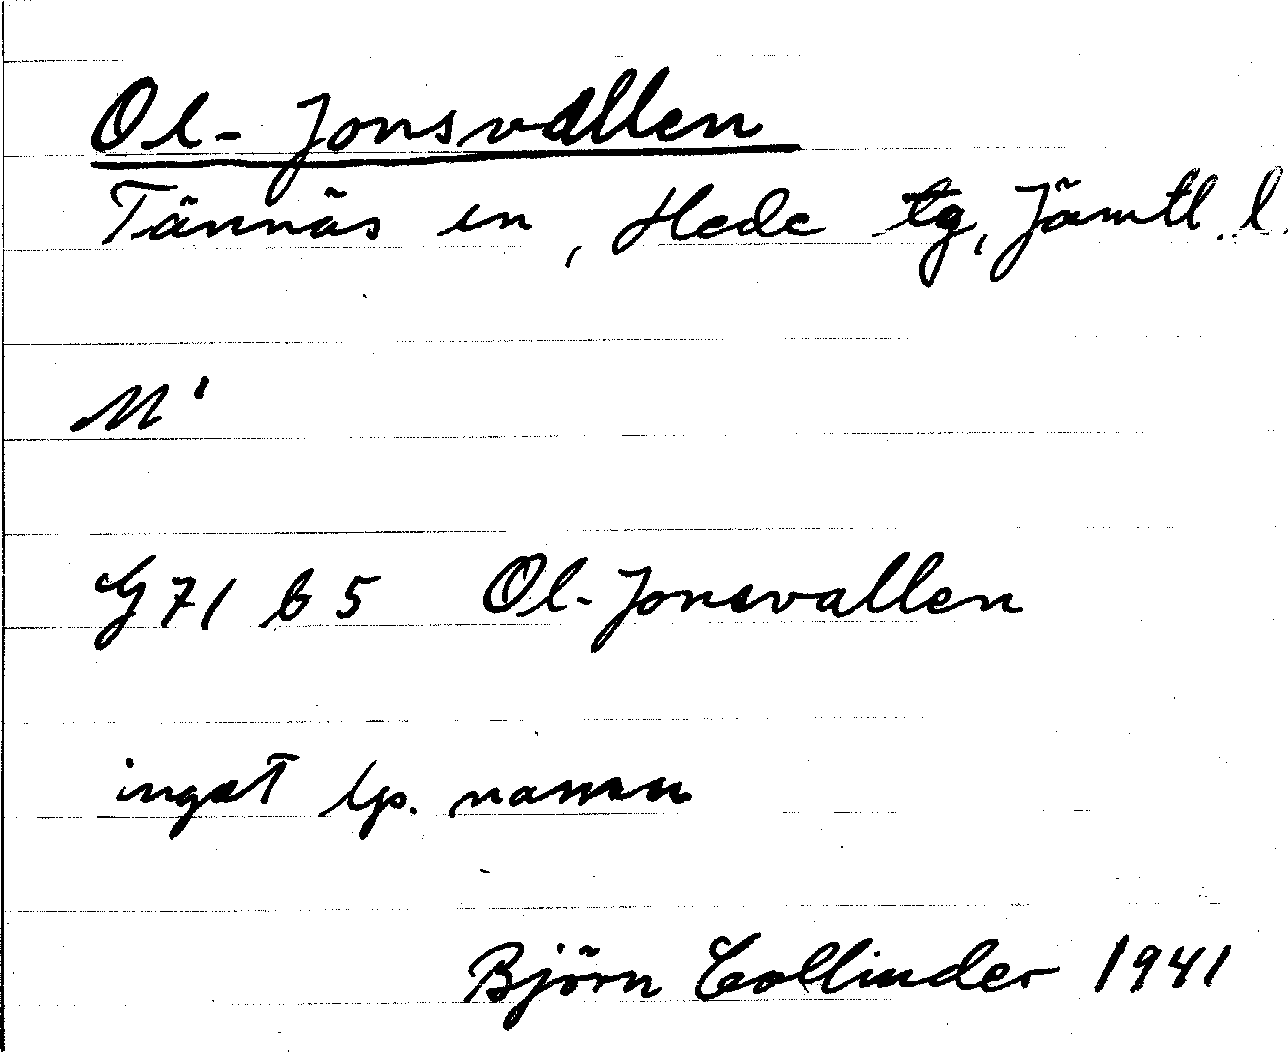 Ol-Jonsvallen
Tännäs sn, Hede tg, Jämtl. l.
M'
G 71 b 5 Ol-Jonsvallen
inget lp. namn
Björn Collinder 1941